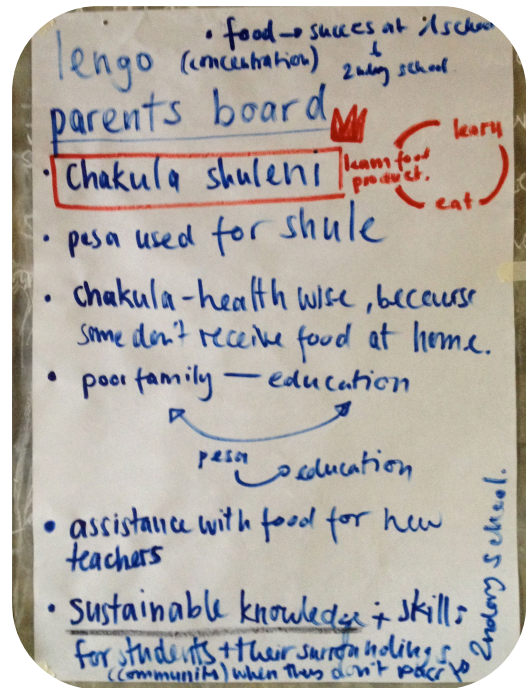 • food → succes at school
lengo (concentration) 2ndary school
parents board
• Chakula shuleni
learn food
product.
learn
eat
• pesa used for shule
• chakula - health wise, because
some don't receive food at home.
• poor family — education
pesa
education
• assistance with food for new
teachers
• sustainable knowledge + skills
for students + their surroundings
(community) when they don't
2ndary school.